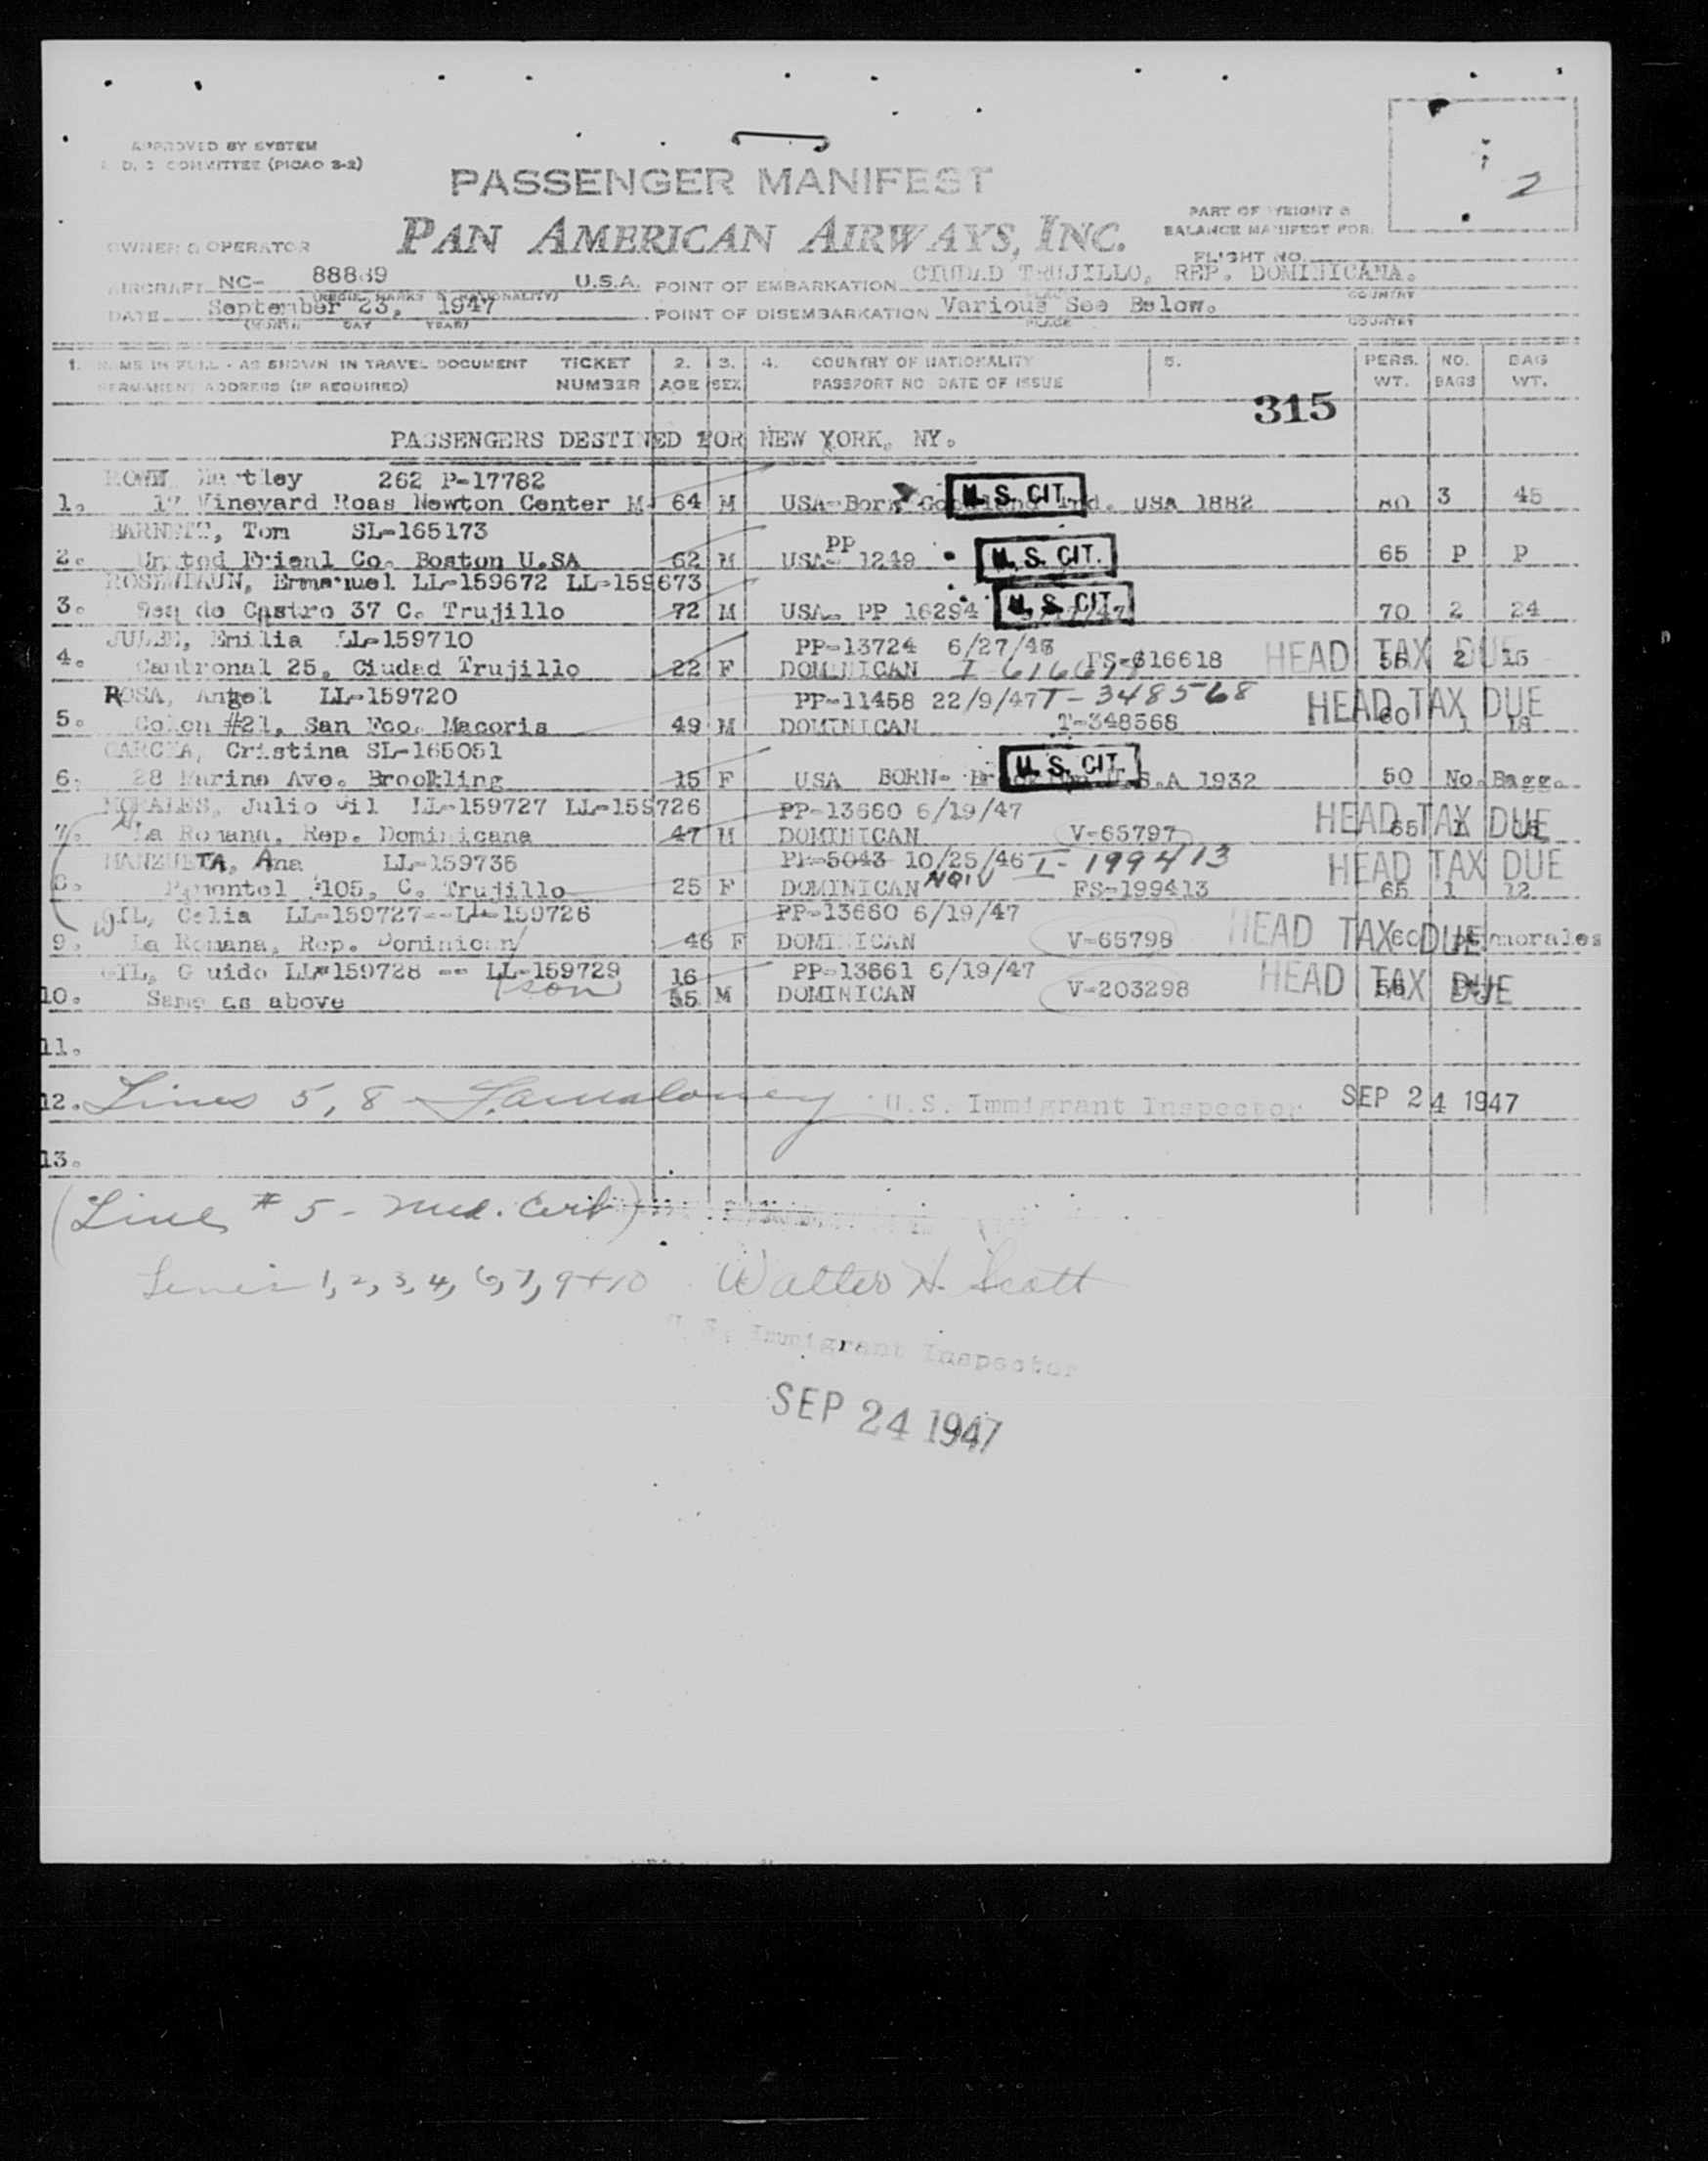 APPROVED BY SYSTEM
COMMITTEE (PICAO 3-2)
PASSENGER MANIFEST
2
PAN AMERICAN AIRWAYS, INC.
PART OF WEIGHT &
BALANCE MANIFEST FOR:
FLIGHT NO.
OWNER & OPERATOR
AIRCRAFT NC- 88889 U.S.A. POINT OF EMBARKATION CIUDAD TRUJILLO, REP. DOMINICANA.
COUNTRY
DATE September 23, 1947 POINT OF DISEMBARKATION Various See Below.
(MONTH DAY YEAR) PLACE COUNTRY
1. NAME IN FULL - AS SHOWN IN TRAVEL DOCUMENT TICKET 2. 3. 4. COUNTRY OF NATIONALITY 5. PERS. NO. BAG
PERMANENT ADDRESS (IF REQUIRED) NUMBER AGE SEX PASSPORT NO DATE OF ISSUE WT. BAGS WT.
315
PASSENGERS DESTINED FOR NEW YORK, NY.
262 P-17782
1. 17 Vineyard Roas Newton Center M 64 M USA-Born U.S. CIT. Ind. USA 1882 80 3 45
Tom SL-165173
2. United Co. Boston U.SA 62 M USA- PP 1249 U.S. CIT. 65 P P
LL-159672 LL-159673
3. de Castro 37 C. Trujillo 72 M USA- PP 16294 U.S. CIT. 70 2 24
Emilia LL-159710 PP-13724 6/27/46
4. 25, Ciudad Trujillo 22 F DOMINICAN FS-616618 HEAD TAX DUE 2 15
ROSA, Angel LL-159720 PP-11458 22/9/47 T-348568
5. Colon #21, San Fco. Macoris 49 M DOMINICAN T-348568 HEAD TAX DUE 60 1 18
GARCIA, Cristina SL-165051
6. 28 Marine Ave. Brookling 15 F USA BORN- U.S. CIT. U.S.A 1932 50 No. Bagg.
MORALES, Julio Gil LL-159727 LL-159726 PP-13660 6/19/47
7. La Romana, Rep. Dominicana 47 M DOMINICAN V-65797 HEAD TAX DUE
MANZUETA, Ana LL-159736 PP-5043 10/25/46 I-199413
8. Pimentel #105, C. Trujillo 25 F DOMINICAN NQIV FS-199413 HEAD TAX DUE 65 1 12
GIL, Celia LL-159727--LL-159726 PP-13660 6/19/47
9. La Romana, Rep. Dominican 46 F DOMINICAN V-65798 HEAD TAX DUE 60 morales
GIL, Guido LL-159728 -- LL-159729 16 PP-13661 6/19/47
10. Same as above (son 55 M DOMINICAN V-203298 HEAD TAX DUE
11.
12. Lines 5, 8 U.S. Immigrant Inspector SEP 24 1947
13.
(Line # 5 - Med. Cert)
Lines 1, 2, 3, 4, 6, 7, 9 + 10 Walter H. Scott
U. S. Immigrant Inspector
SEP 24 1947